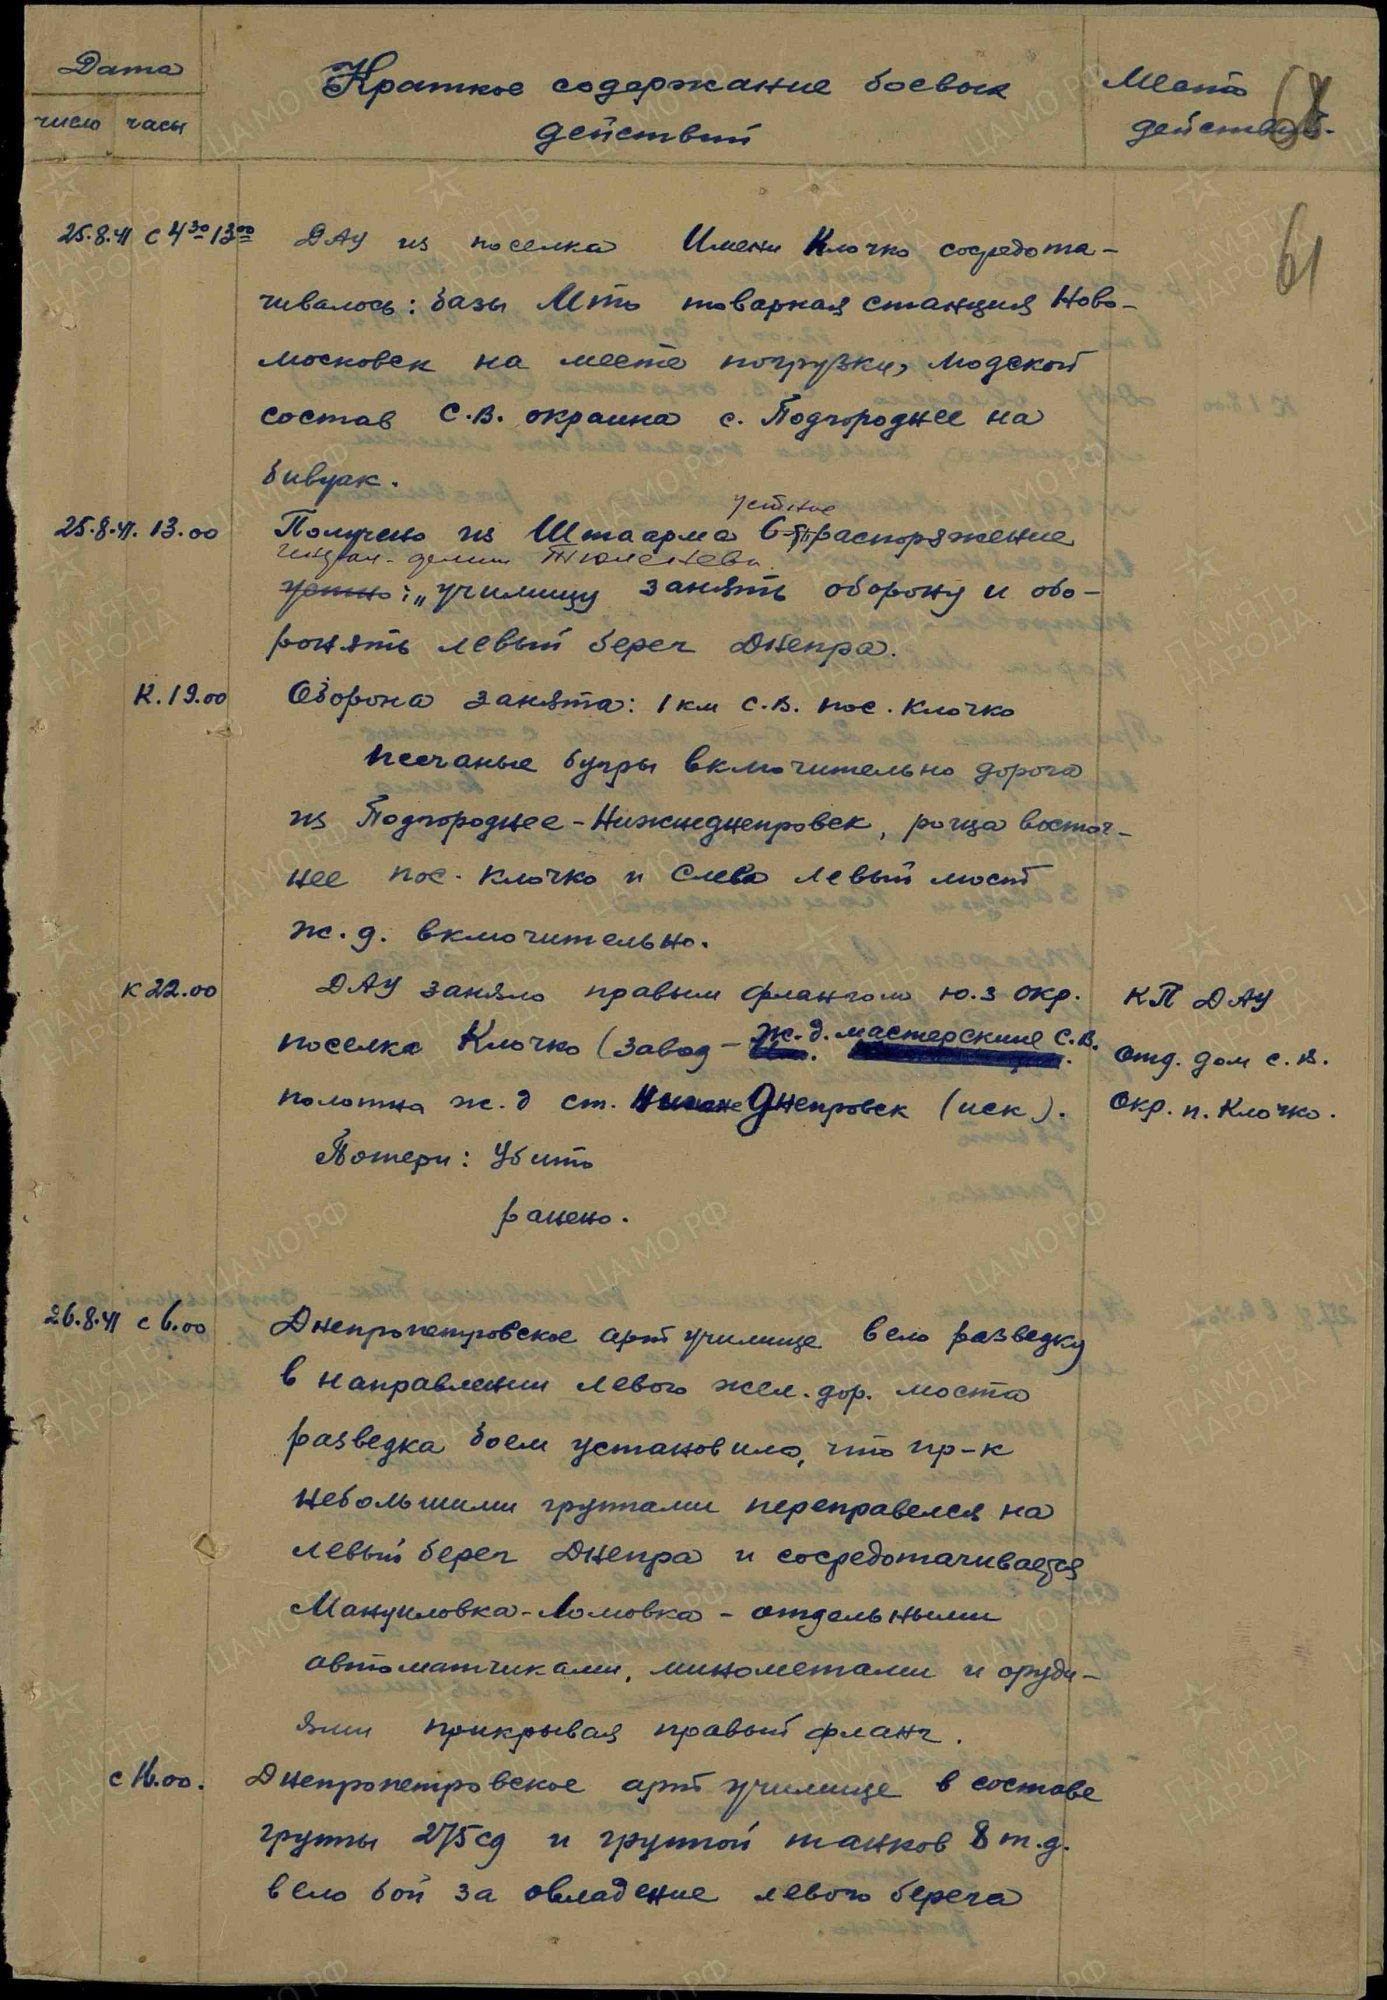 Дата
число часы
Краткое содержание боевых
действий
Место
действий.
61
25.8.41 с 4 30 13 00 ДАУ из поселка Имени Клочко сосредота-
чивалось: базы Мто товарная станция Ново-
московск на месте погрузки, людской
состав С.В. окраина с. Подгороднее на
бивуак.
устное
25.8.41. 13.00 Получено из Штаарма 6 распоряжение
Тюленева
устно: „училищу занять оборону и обо-
ронять левый берег Днепра.
К. 19.00 Оборона занята: 1 км С.В. пос. Клочко
песчаные бугры включительно дорога
из Подгороднее - Нижнеднепровск, роща восточ-
нее пос. Клочко и слева левый мост
ж.д. включительно.
к 22.00 ДАУ заняло правым флангом ю.з окр. КП ДАУ
поселка Клочко (завод - ж.д. мастерские С.В. отд. дом с.в.
полотна ж.д ст. Нижне Днепровск (иск). Окр. п. Клочко.
Потери: Убито
ранено.
26.8.41 с 6.00 Днепропетровское арт училище вело разведку
в направлении левого жел. дор. моста
разведка боем установило, что пр-к
небольшими группами переправелся на
левый берег Днепра и сосредотачивается
Мануиловка - Ломовка - отдельными
автоматчиками, минометами и оруди-
ями прикрывая правый фланг.
с 16.00. Днепропетровское арт училище в составе
группы 275сд и группой танков 8 т.д.
вело бой за овладение левого берега